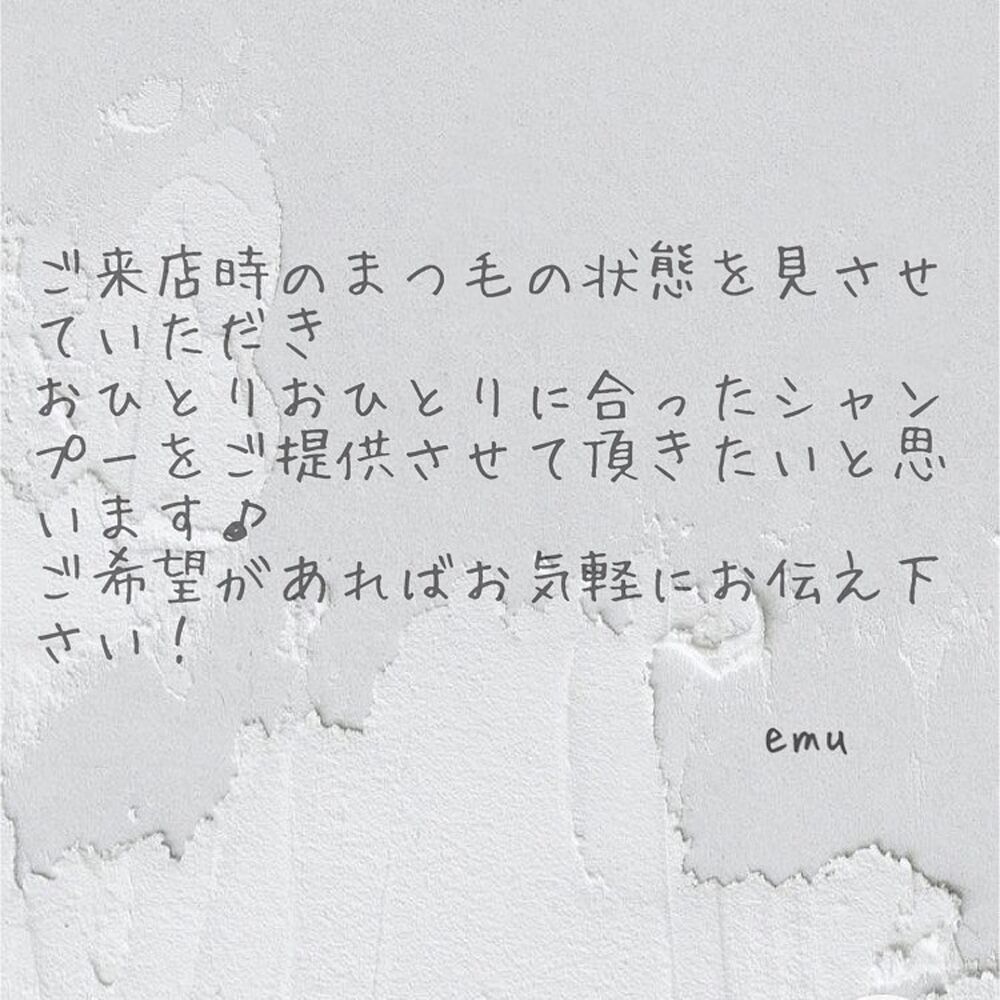 ご来店時のまつ毛の状態を見させ
ていただき
おひとりおひとりに合ったシャン
プーをご提供させて頂きたいと思
います♪
ご希望があればお気軽にお伝え下
さい!
emu